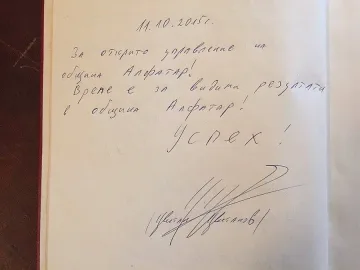 11.10.2015 г.
За открито управление на
община Алфатар!
Време е за видими резултати
в община Алфатар!
Успех!